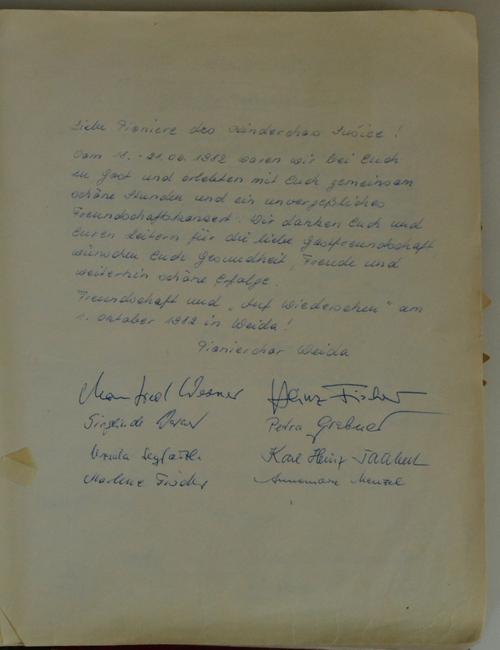 Liebe Pioniere des Kinderchors Sušice!
Vom 11.-21.06.1982 waren wir bei Euch
zu Gast und erlebten mit Euch gemeinsam
schöne Stunden und ein unvergeßliches
Freundschaftskonzert. Wir danken Euch und
Euren Leitern für die liebe Gastfreundschaft
wünschen Euch Gesundheit, Freude und
weiterhin schöne Erfolge.
Freundschaft und „Auf Wiedersehen" am
1. Oktober 1982 in Weida!
Pionierchor Weida
Manfred Werner Heinz Fischer
Petra Grebner
Ursula Karl Heinz
Marlene Fischer Annemarie Menzel